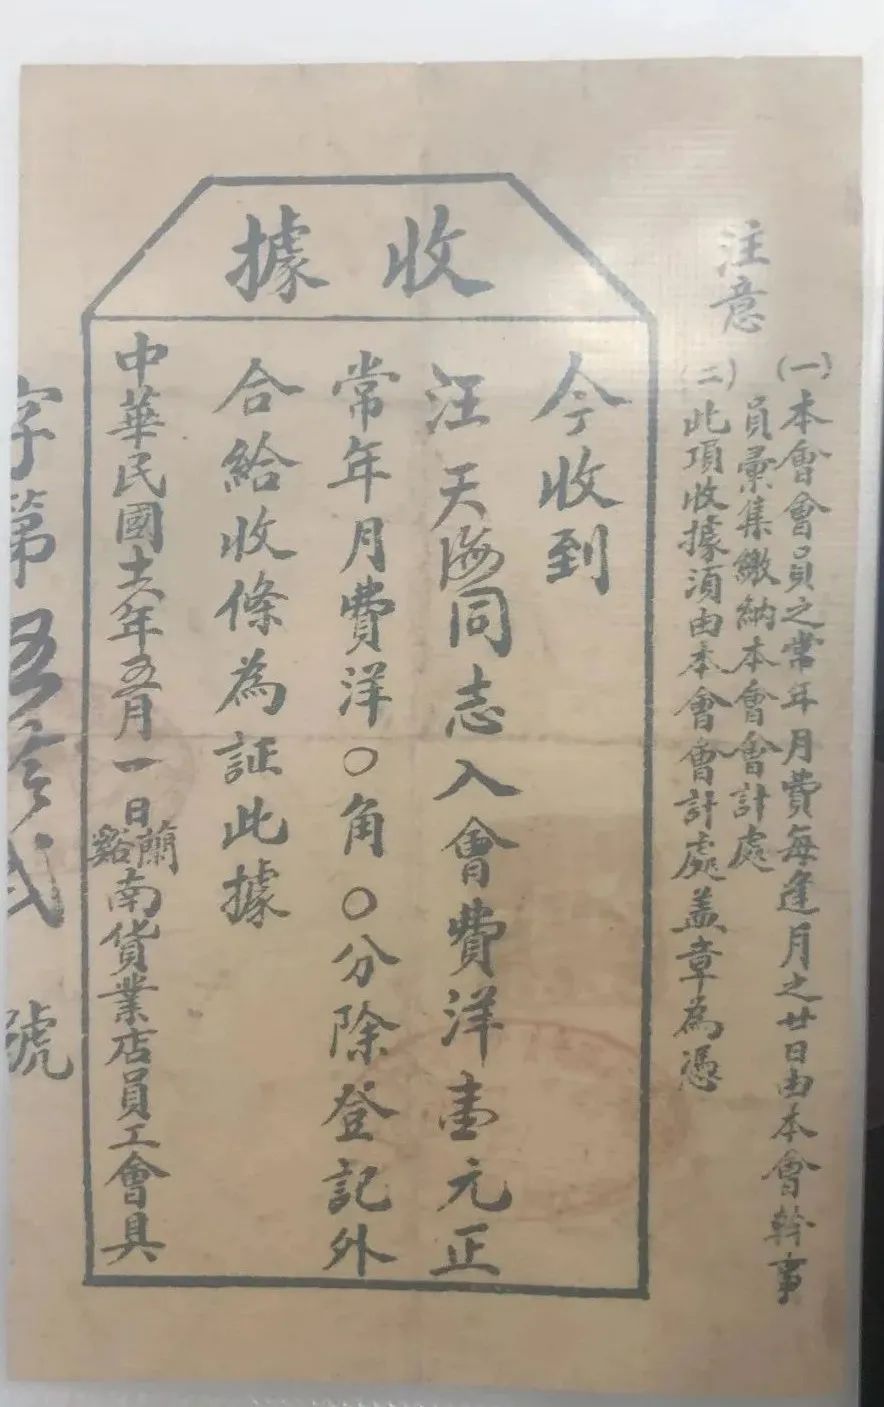 注意
(一)本會會員之常年月費每逢月之廿日由本會幹事
員彙集繳納本會會計處
(二)此項收據須由本會會計處盖章為憑
收據
今收到
汪天海同志入會費洋壹元正
常年月費洋〇角〇分除登記外
合給收條為証此據
中華民國十六年五月一日蘭谿南貨業店員工會具
字第五弍號